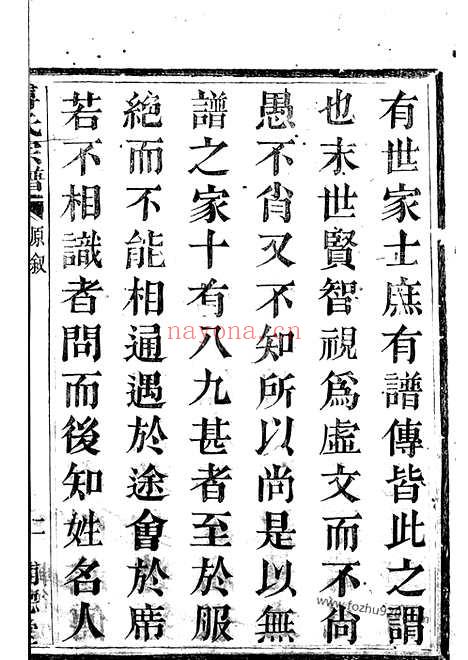 有世家士庶有譜傳皆此之謂
也末世賢智視爲虛文而不尚
愚不肖又不知所以尚是以無
譜之家十有八九甚者至於服
絕而不能相通遇於途會於席
若不相識者問而後知姓名人
氏宗譜
原敘
二
nayona.cn